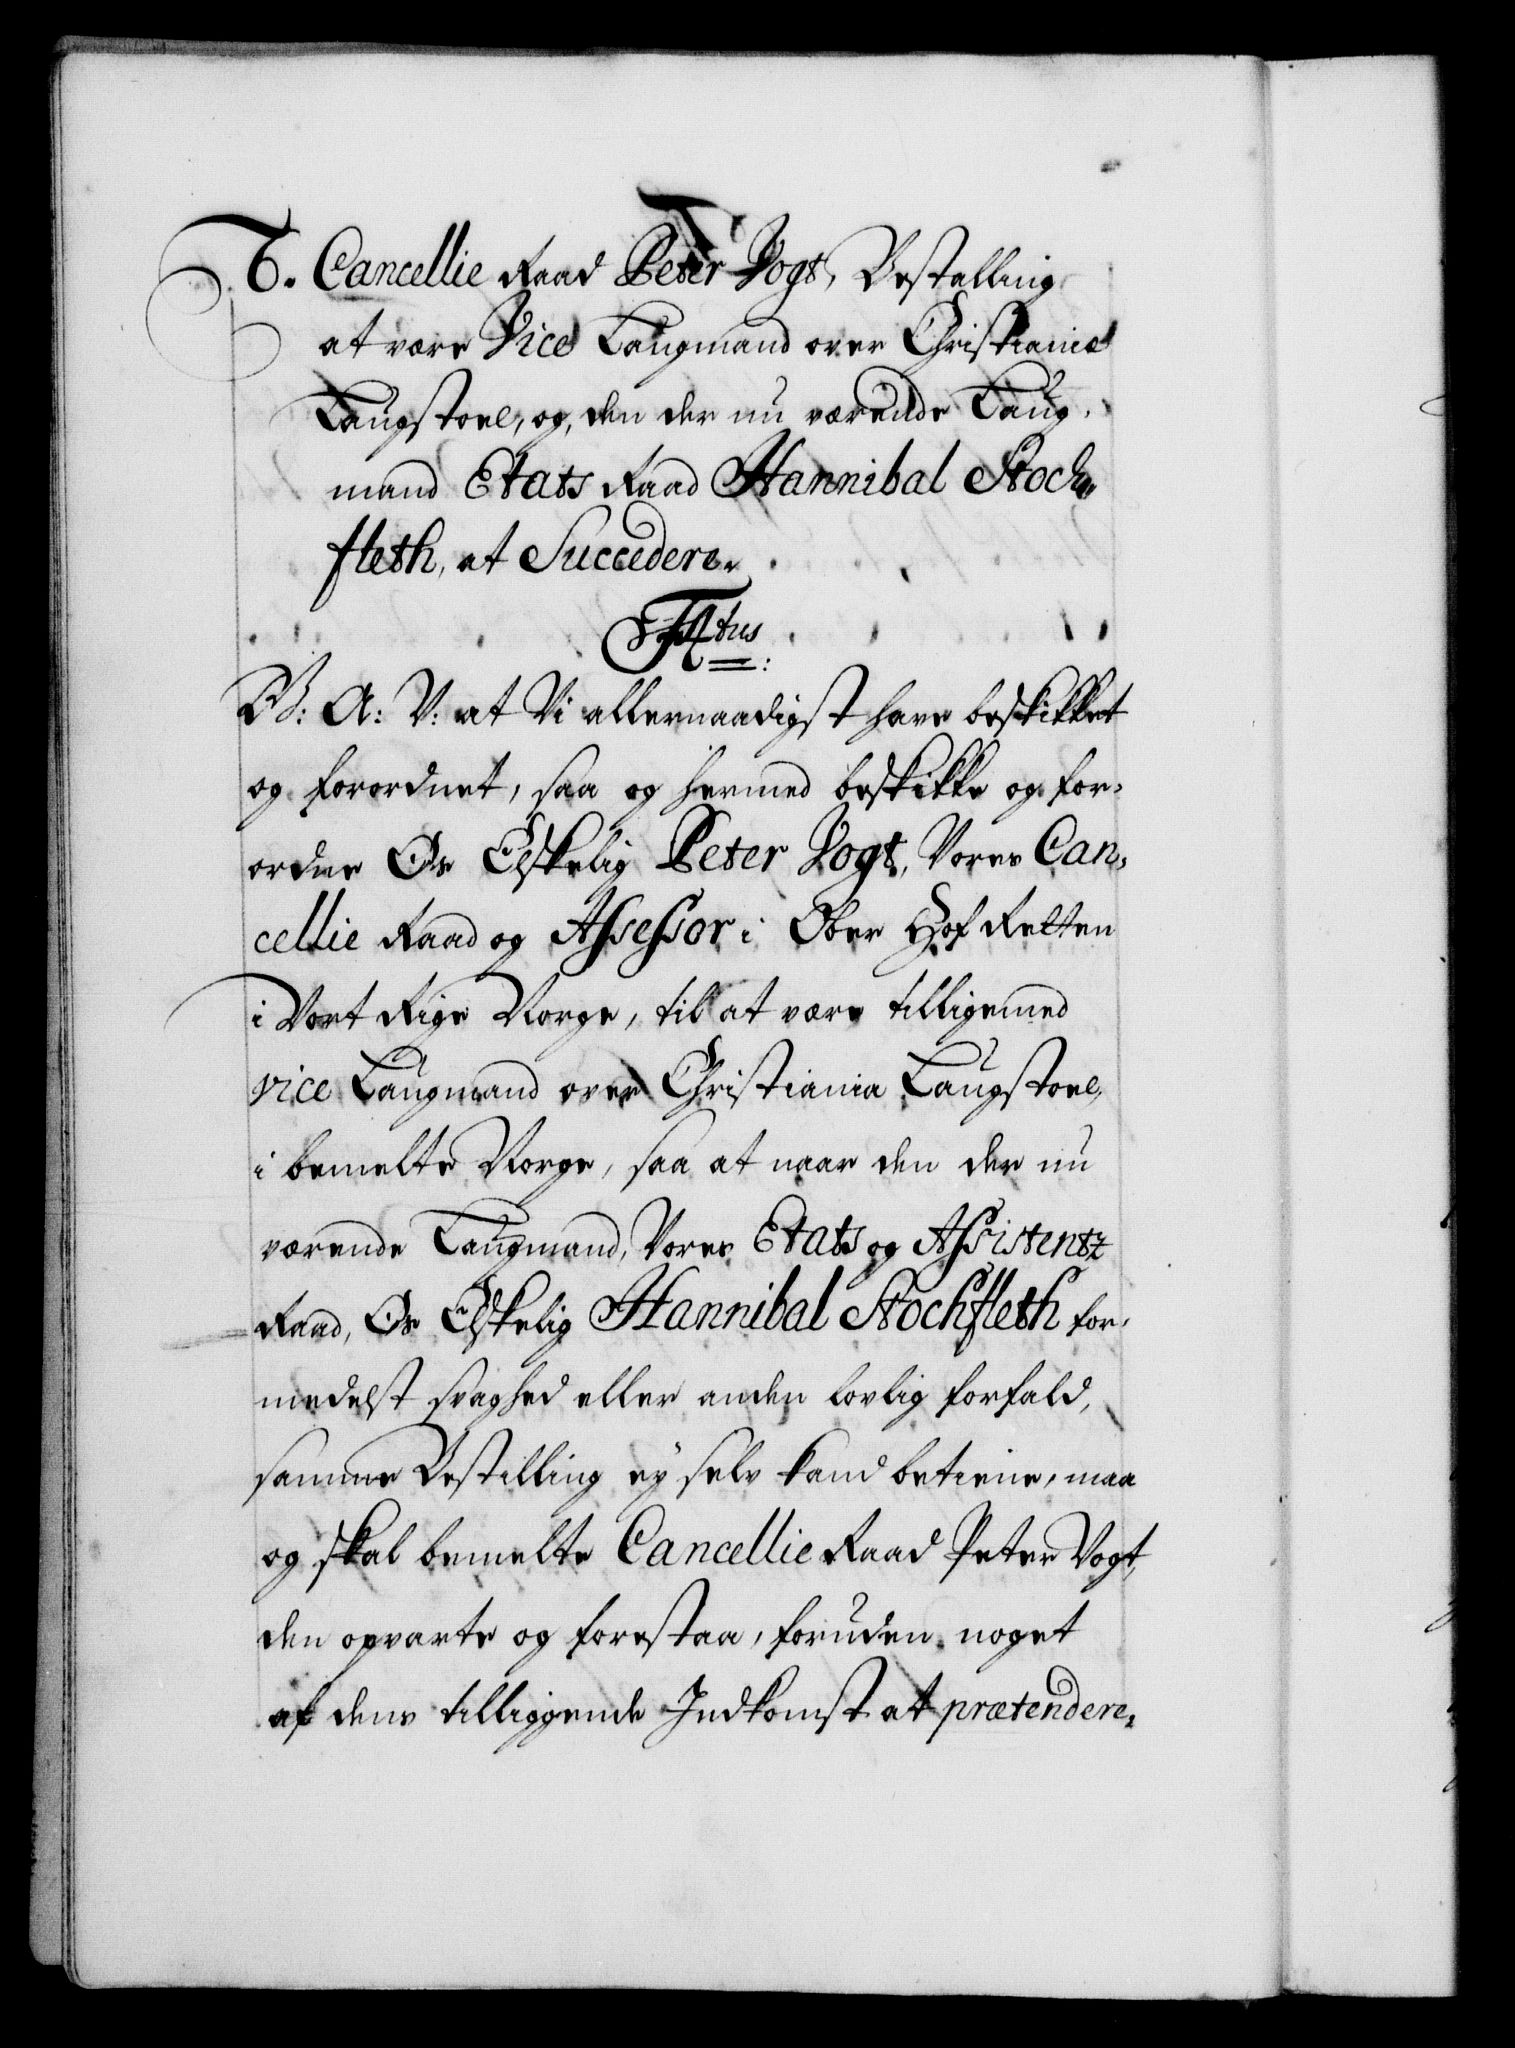 6. Cancellie Raad Peter Vogt, Bestalling
at være Vice Laugmand over Christianiæ
Laugstoel, og, den der nu værende Laug-
mand Etats Raad Hannibal Stoch„
fleth, at Succedere.
F 4tus
W: A: V: at Vi allernaadigst have beskikket
og forordnet, saa og hermed beskikke og for-
ordne Os Elskelig Peter Vogt, Vores Can-
cellie Raad og Assessor i Ober Hof Retten
i Vort Rige Norge, til at være tilligemed
vice Laugmand over Christiania Laugstoel,
i bemelte Norge, saa at naar den der nu
værende Laugmand, Vores Etats og Assistentz
Raad, Os Elskelig Hannibal Stochfleth for-
medelst svaghed eller anden lovlig forfald,
samme Bestilling ey selv kand betiene, maa
og skal bemelte Cancellie Raad Peter Vogt,
den opvarte og forestaa, foruden noget
af dens tilliggende Indkomst at prætendere,